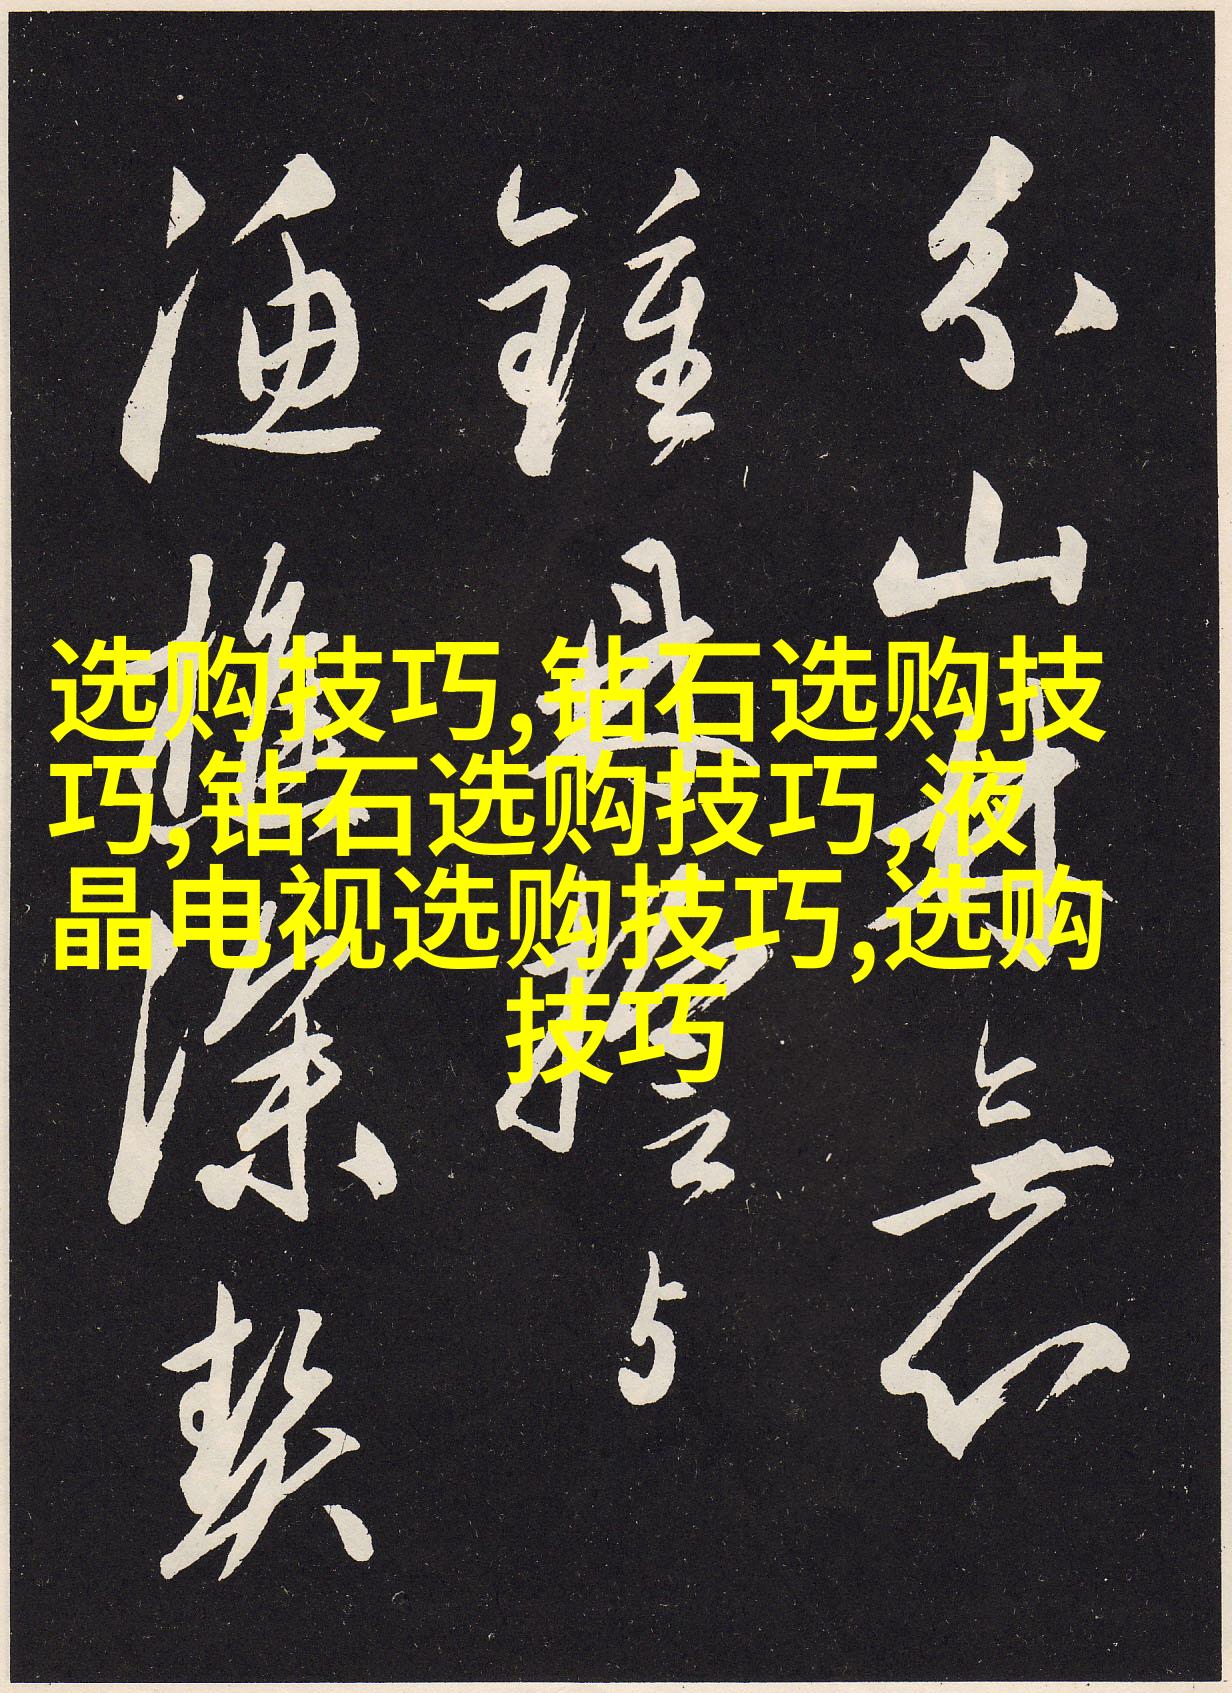 选购技巧,钻石选购技
巧,钻石选购技巧,液
晶电视选购技巧,选购
技巧
山
鍾与
漁樵深契